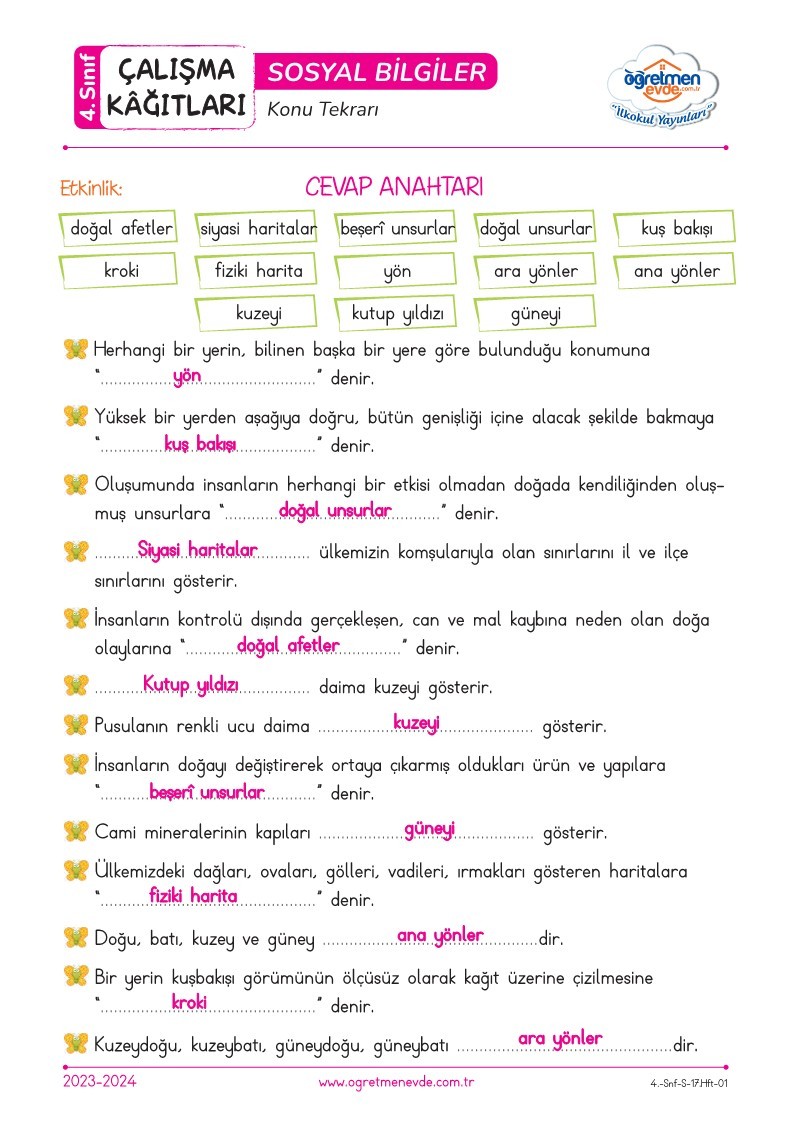 4. Sınıf
ÇALIŞMA
KÂĞITLARI
SOSYAL BİLGİLER
Konu Tekrarı
öğretmen
evde.com.tr
"İlkokul Yayınları"
Etkinlik:
CEVAP ANAHTARI
doğal afetler siyasi haritalar beşerî unsurlar doğal unsurlar kuş bakışı
kroki fiziki harita yön ara yönler ana yönler
kuzeyi kutup yıldızı güneyi
Herhangi bir yerin, bilinen başka bir yere göre bulunduğu konumuna
"................yön................" denir.
Yüksek bir yerden aşağıya doğru, bütün genişliği içine alacak şekilde bakmaya
"................kuş bakışı................" denir.
Oluşumunda insanların herhangi bir etkisi olmadan doğada kendiliğinden oluş-
muş unsurlara "................doğal unsurlar................" denir.
................Siyasi haritalar................ ülkemizin komşularıyla olan sınırlarını il ve ilçe
sınırlarını gösterir.
İnsanların kontrolü dışında gerçekleşen, can ve mal kaybına neden olan doğa
olaylarına "................doğal afetler................" denir.
................Kutup yıldızı................ daima kuzeyi gösterir.
Pusulanın renkli ucu daima ................kuzeyi................ gösterir.
İnsanların doğayı değiştirerek ortaya çıkarmış oldukları ürün ve yapılara
"................beşerî unsurlar................" denir.
Cami mineralerinin kapıları ................güneyi................ gösterir.
Ülkemizdeki dağları, ovaları, gölleri, vadileri, ırmakları gösteren haritalara
"................fiziki harita................" denir.
Doğu, batı, kuzey ve güney ................ana yönler................dir.
Bir yerin kuşbakışı görümünün ölçüsüz olarak kağıt üzerine çizilmesine
"................kroki................" denir.
Kuzeydoğu, kuzeybatı, güneydoğu, güneybatı ................ara yönler................dir.
2023-2024
www.ogretmenevde.com.tr
4.-Snf-S-17.Hft-01